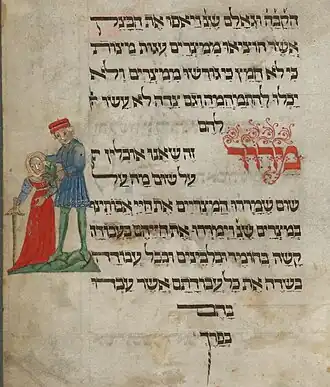 הקבה וגואלם שנ ויאפו את הבצק
אשר הוציאו ממצרים עגות מצות
כי לא חמץ כי גורשו ממצרים ולא
יכלו להתמהמה וגם צדה לא עשו
להם
מרור
זה שאנו אוכלין
על שום מה על
שום שמררו המצריים את חיי אבותינו
במצרים שנ וימררו את חייהם בעבודה
קשה בחומר ובלבנים ובכל עבודה
בשדה את כל עבודתם אשר עבדו
בהם
בפרך